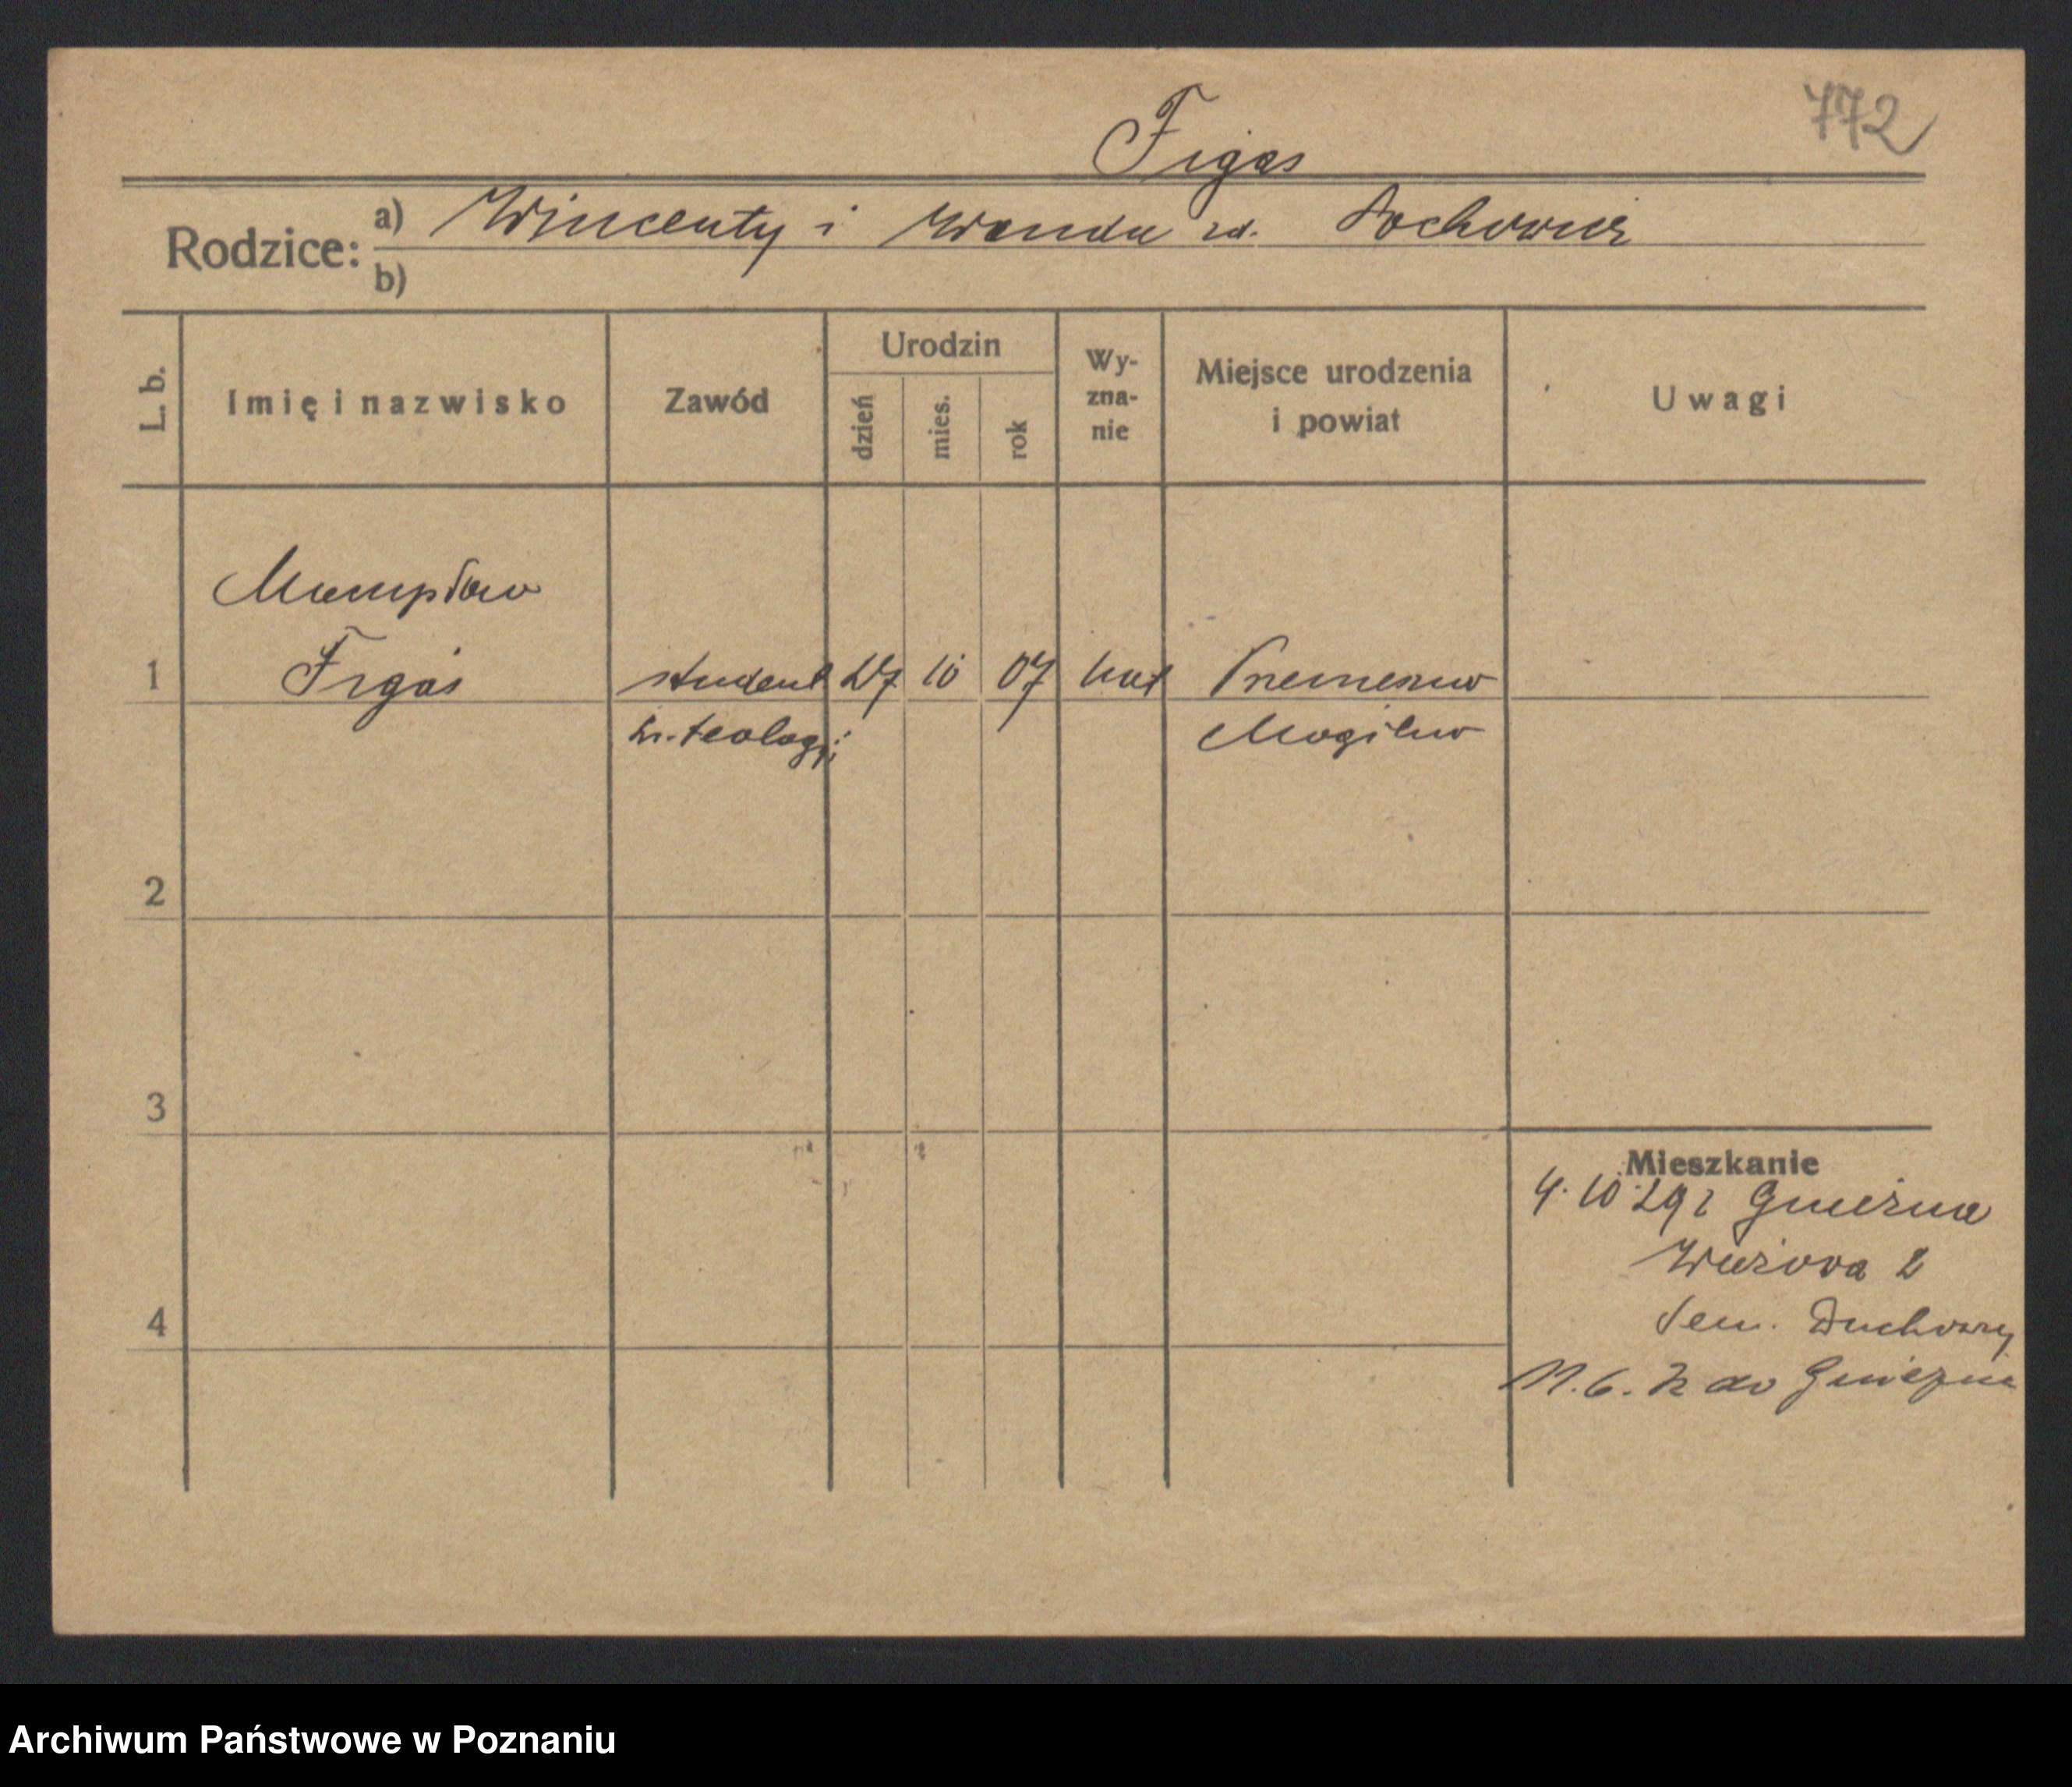 772
Figas
Rodzice: a) Wincenty i Wanda zd. Sochowicz
b)
L. b.
Imię i nazwisko
Zawód
Urodzin
dzień
mies.
rok
Wy-
zna-
nie
Miejsce urodzenia
i powiat
Uwagi
Mieczysław
1 Figas student 27 10 07 kat
św. teologji Mogilno
2
3
4
Mieszkanie
4. 10 29 z Gniezna
Wieżowa 2
Sem. Duchowny
11. 6. 32 do Gniezna
Archiwum Państwowe w Poznaniu